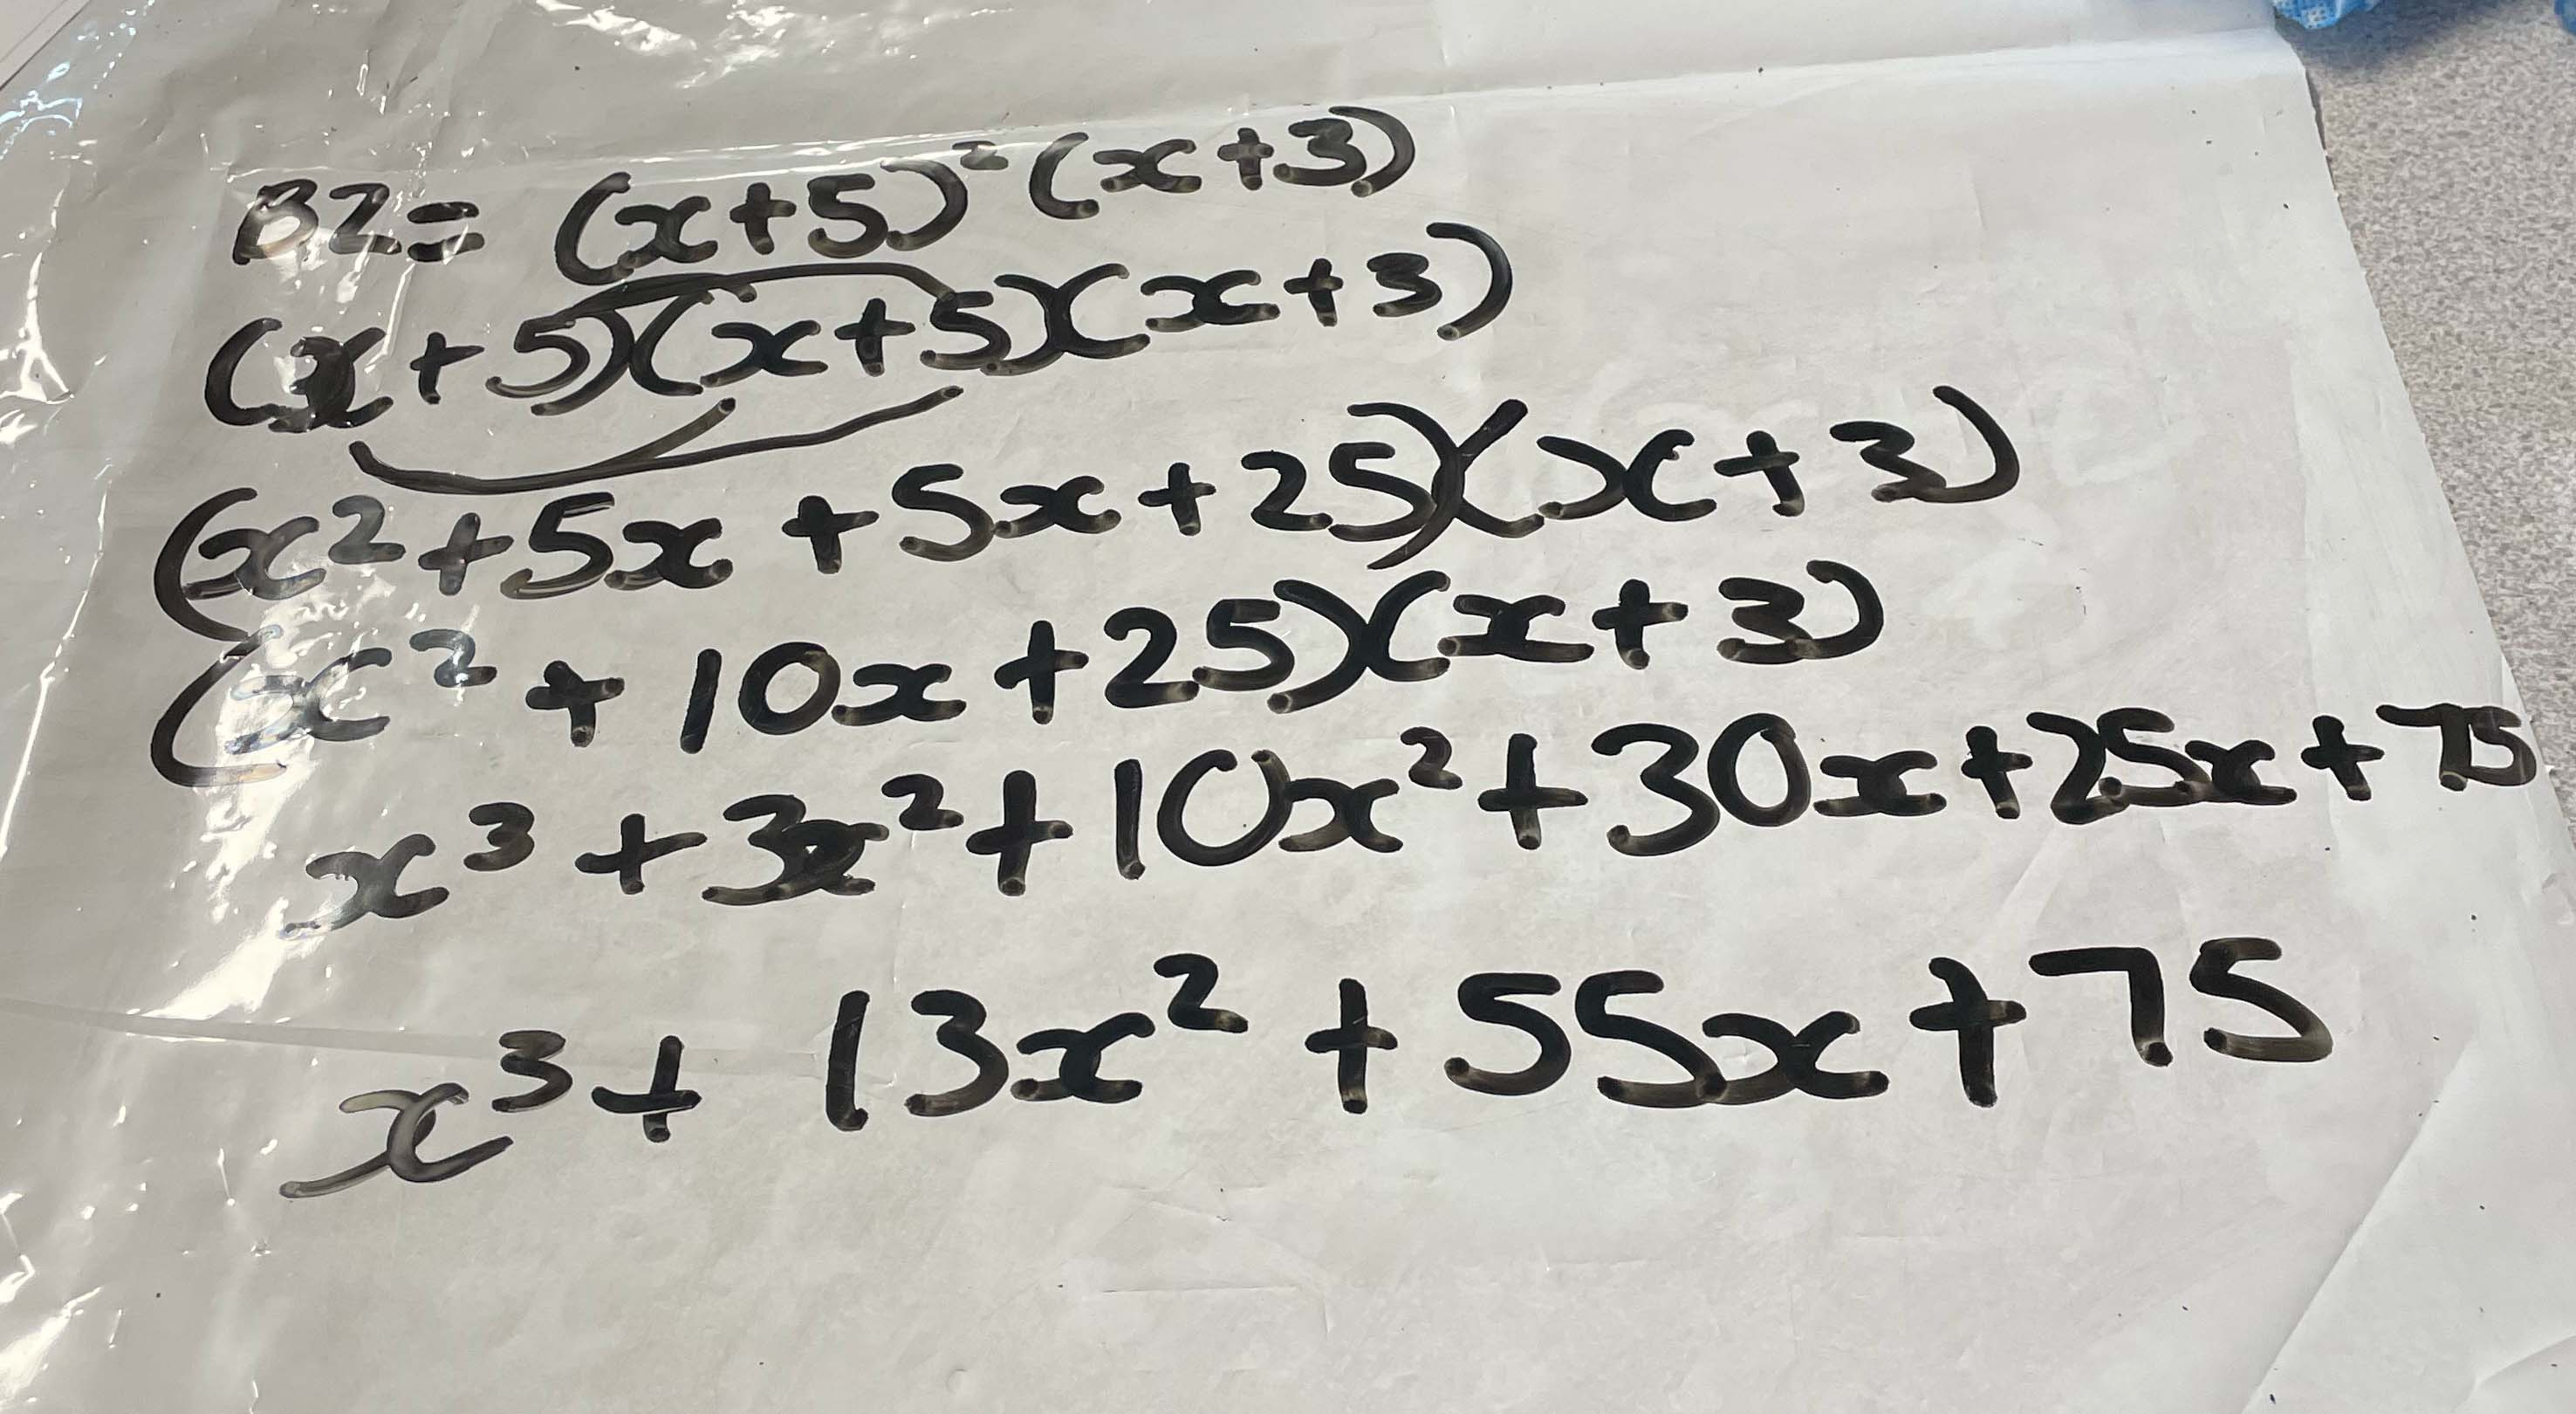 B2= (x+5)²(x+3)
(x+5)(x+5)(x+3)
(x²+5x+5x+25)(x+3)
(x²+10x+25)(x+3)
x³+3x²+10x²+30x+25x+75
x³+13x²+55x+75